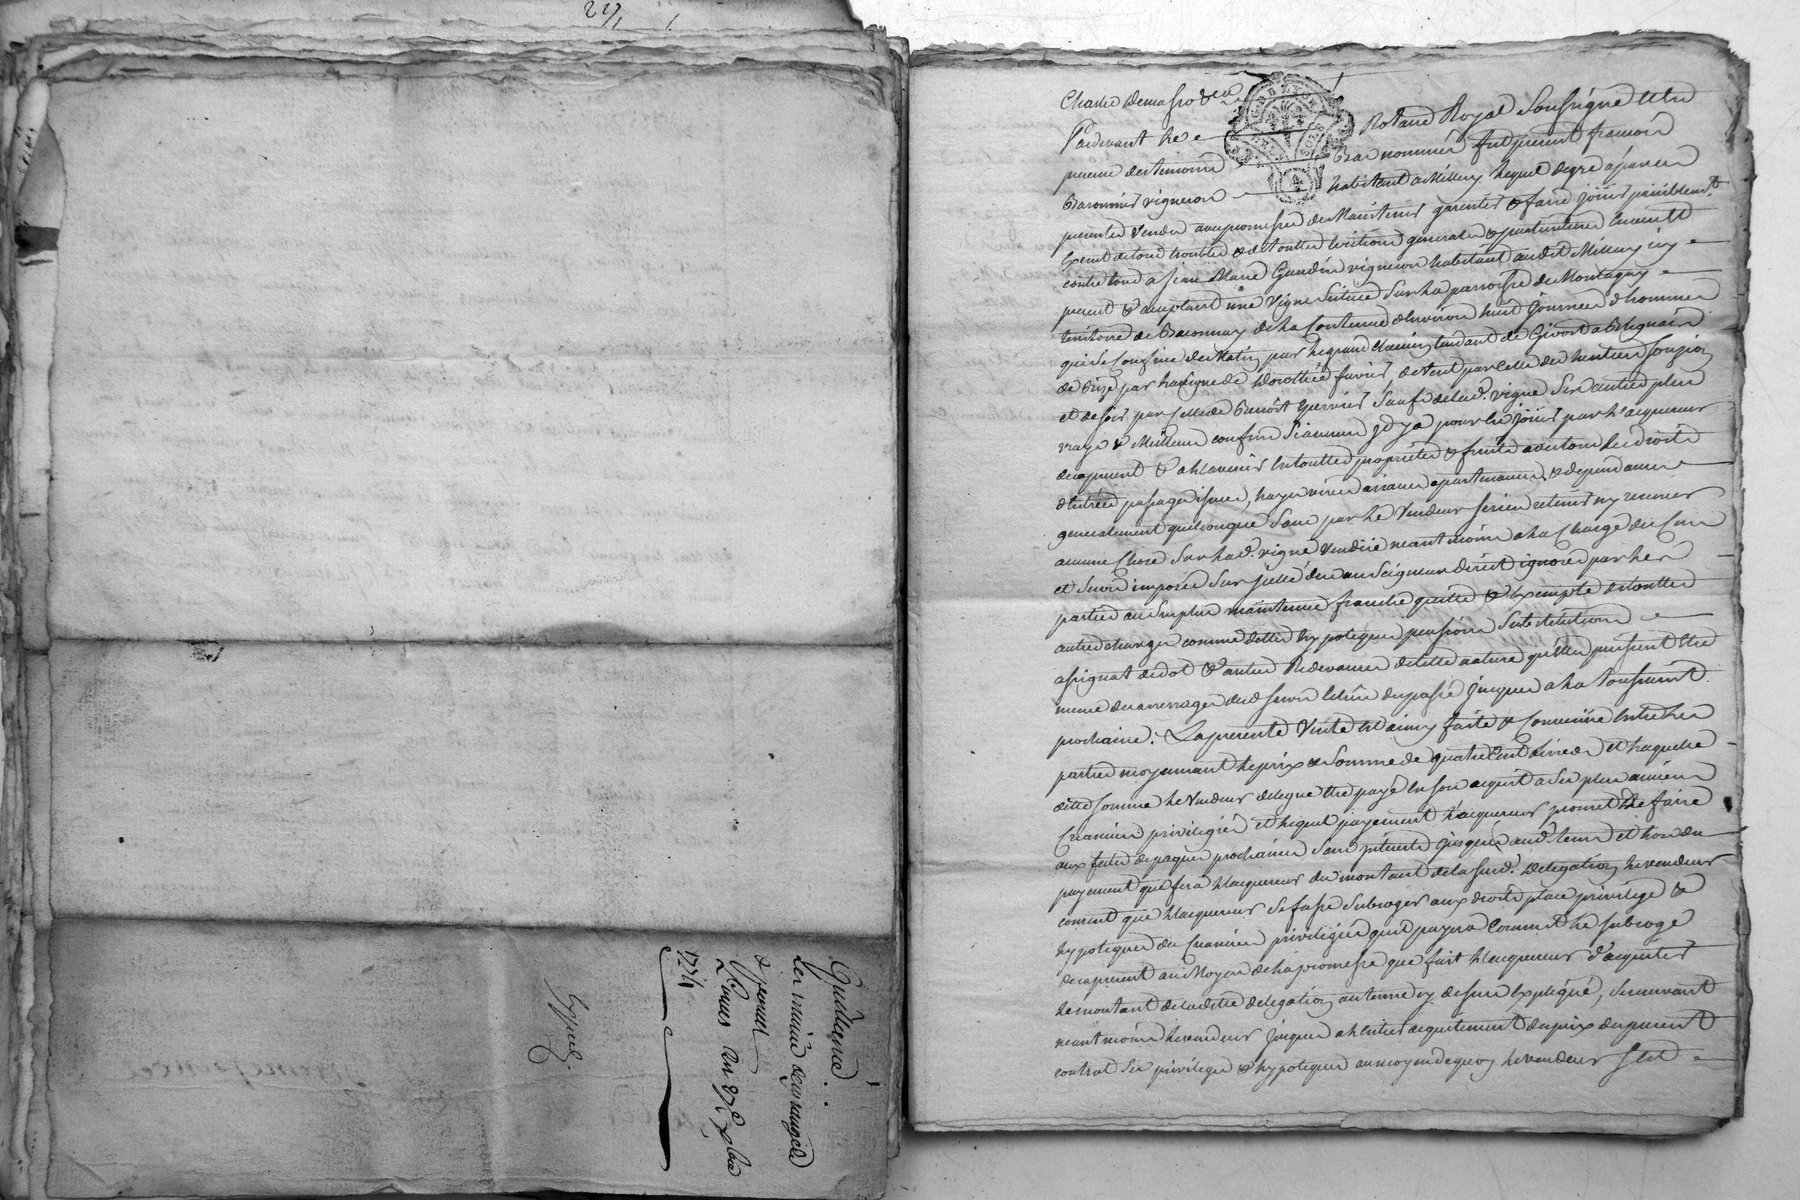 271
Quittance
& Jeanne
1771
Expédié
Pardevant le Notaire Royal Soussigné et en
presence des temoins bas nommés fut present françois
Baronnier vigneron habitant a Millery lequel de gré a par ces
presentes vendu avec promesse de Maintenir garentir & faire joüir paisiblement
Exemt de tous troubles & de touttes Evictions generales & particulieres Envers &
contre tous a Jean Marie Gaudin vigneron habitant audit Millery icy
present & acceptant une vigne Situee Sur la parroisse de Montagny
territoire de Baconnay de la Contenüe d'Environ huit Journées d'hommes
qui Se Confine de Matin par le grand Chemin tendant de Givors a Brignais
de Bize par la vigne de
et de soir par Celle de Benoit Sauf de lad. vigne Ses autres plus
vrays & Meilleurs confins Si aucuns Il y a pour En joüir par l'acquereur
des apresent & a l'avenir En touttes proprietés & fruits avec tous Les droits
d'Entrées passages issues, appartenances & dependances
generalement quelconques Sans par le Vendeur S'en rien retenir ny reserver
aucune Chose Sur lad. vigne Vendüe neantmoins a la Charge du Cens
et Servis imposés Sur Jcelle deu au Seigneur direct ignoré par les
parties au Surplus maintenüe franche quitte & Exempte de touttes
autres charges comme dettes hypoteques pensions Substitutions
assignat de dot & autres Redevances de telle nature qu'elles puissent Etre
meme des arrerages desd servis Echus du passé Jusques a la toussaint
prochaine. La presente Vente Est ainsy faite & Convenüe Entre Les
parties moyennant le prix & Somme de quatre Cent Livres et laquelle
ditte Somme le Vendeur delegue Etre payé En son acquit a Ses plus anciens
Creanciers privilegiés et lequel payement l'acquereur promet De faire
aux fetes de paques prochaines Sans jnterets jusques aud. tems et lors du
payement que fera l'acquereur du montant de la Susd. delegation le vendeur
consent que l'acquereur Se fasse Subroger aux droits place privilege &
hypoteques des Creanciers privilegiés qu'il payera Comme il Le Subroge
des apresent au Moyen de la promesse que fait l'acquereur d'acquitter
le montant de laditte delegation au terme cy dessus Expliqué, Se reservant
neantmoins le vendeur jusques a l'entier acquittement du prix du present
contrat Ses privileges & hypoteques au moyen de quoy le vendeur S'est